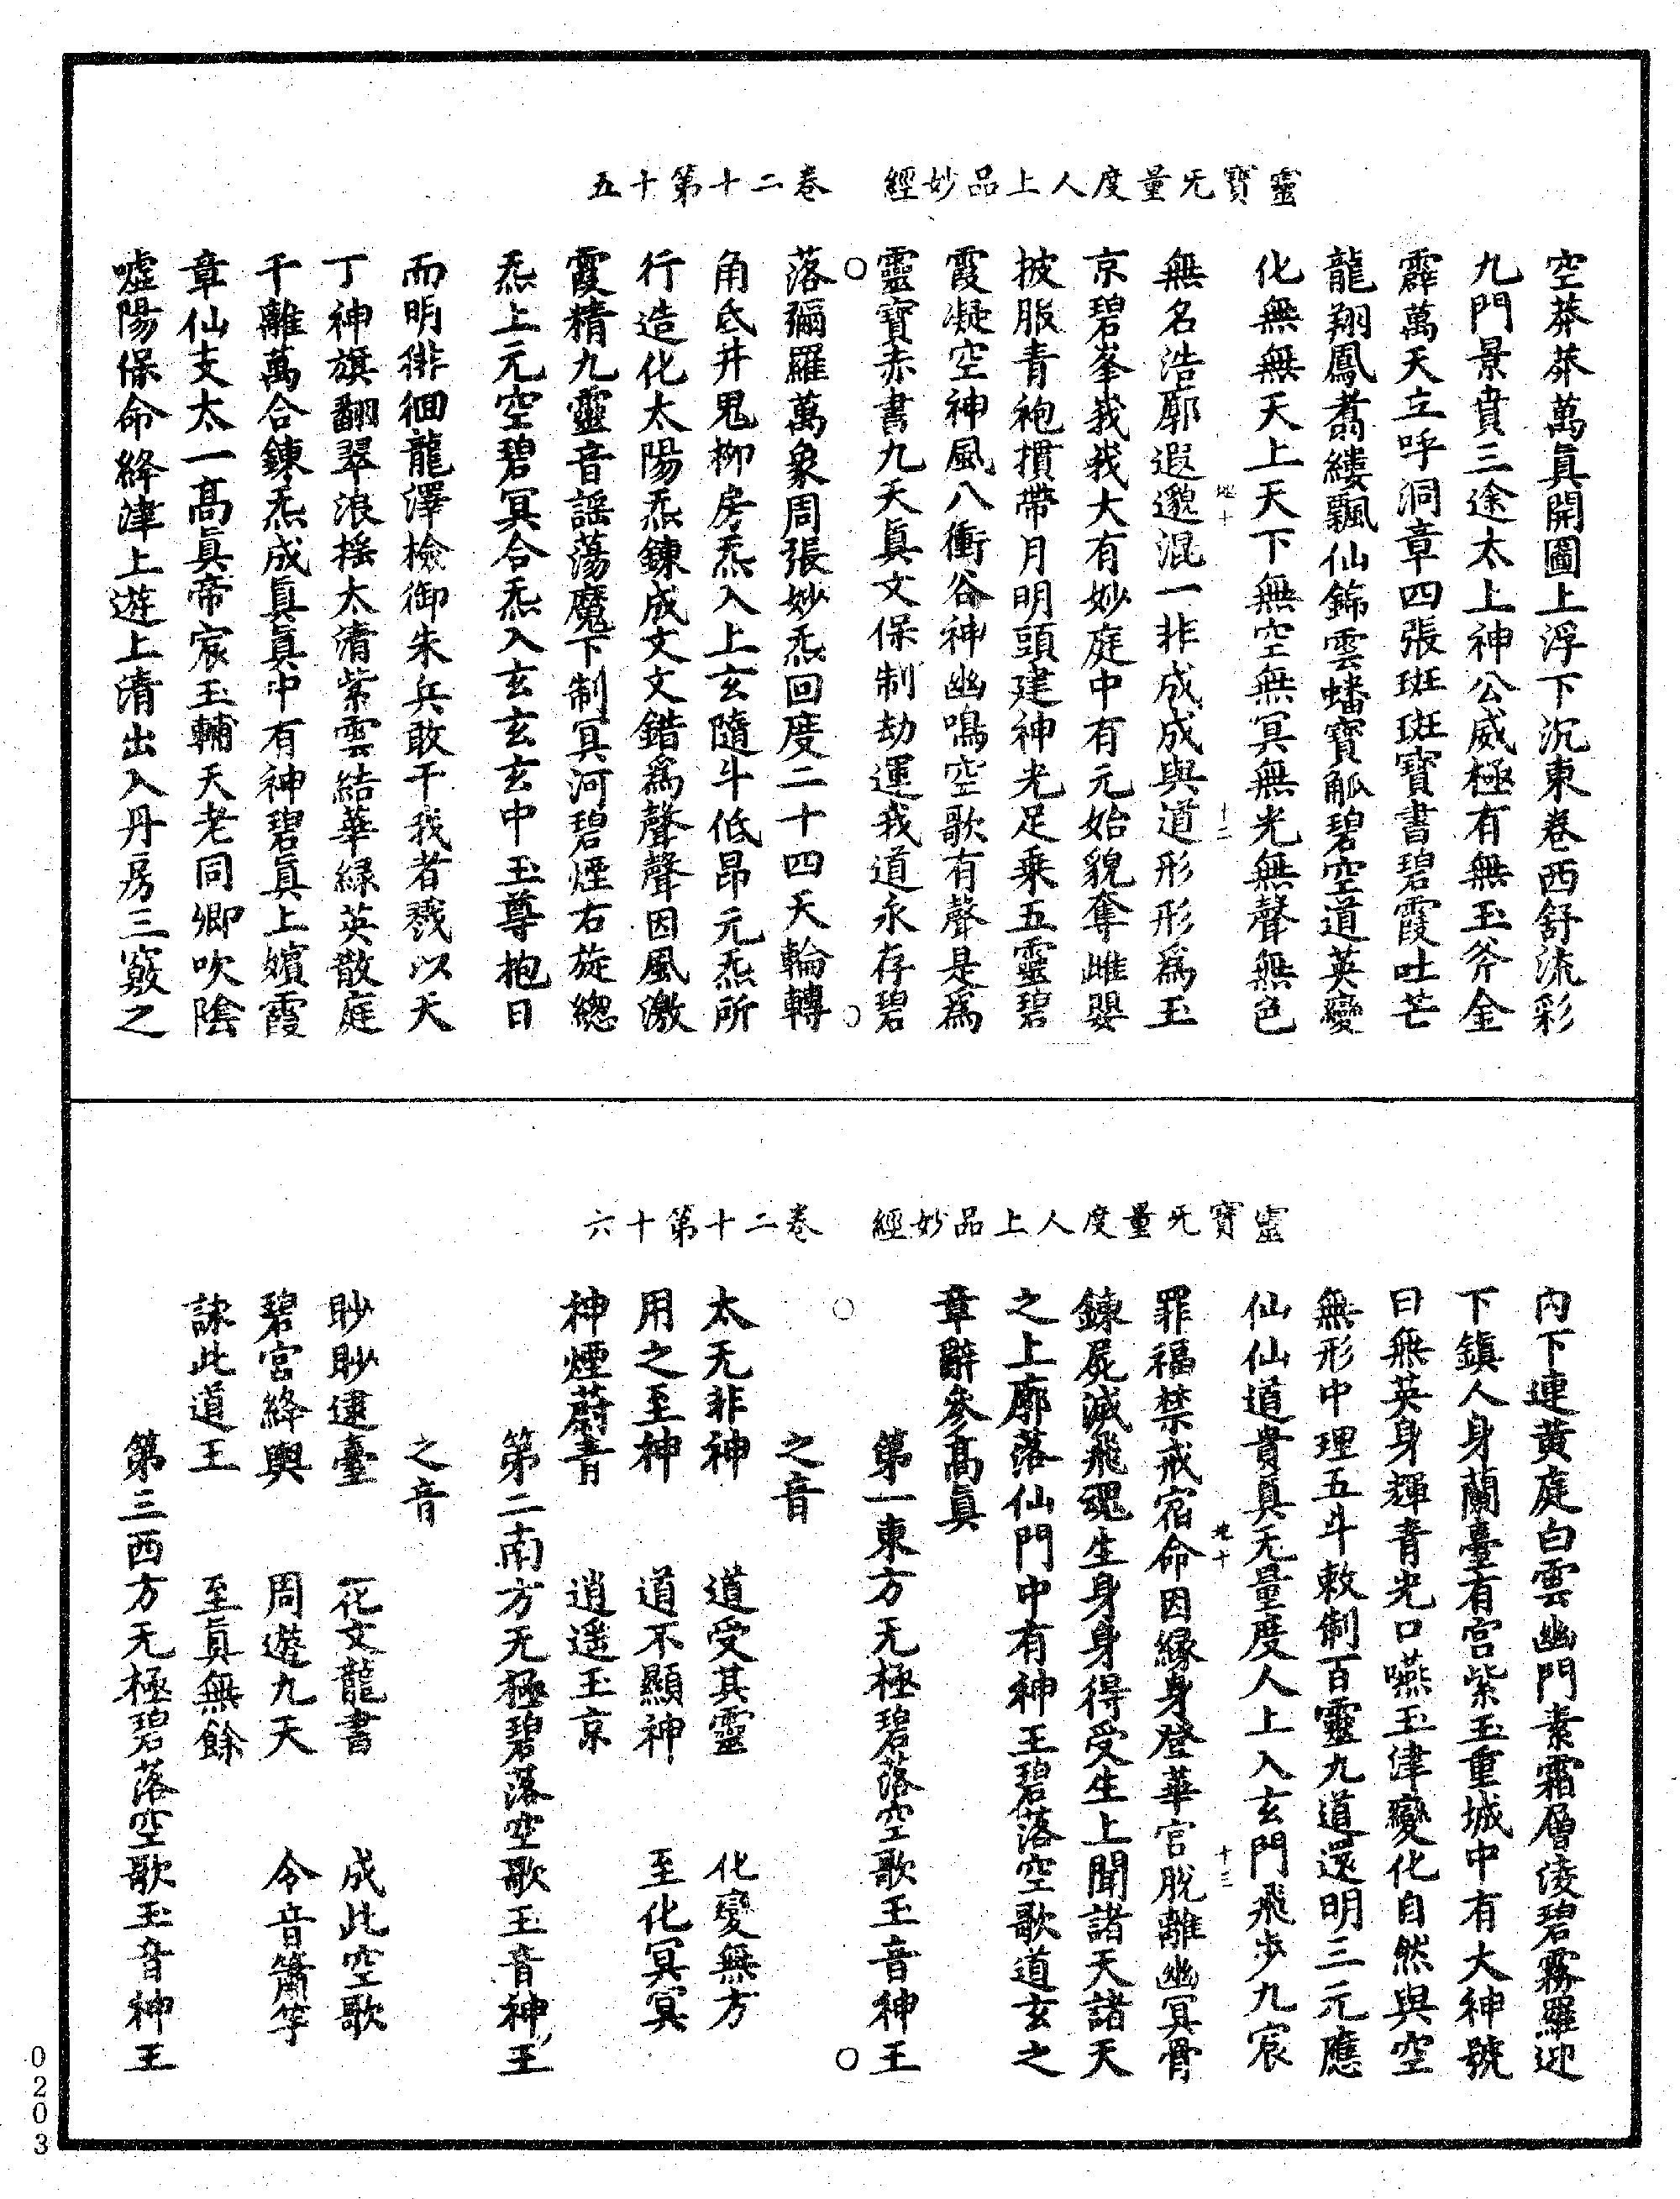 靈寶无量度人上品妙經　卷二十第十五
空莽莽萬眞開圖上浮下沉東卷西舒流彩
九門景賁三途太上神公威極有無玉斧金
霹萬天立呼洞章四張斑斑寶書碧霞吐芒
龍翔鳳翥縷飄仙錦雲蟠寶觚碧空道英變
化無無天上天下無空無冥無光無聲無色
地十　十二
無名浩廓遐邈混一非成成與道形形爲玉
京碧峯峩峩大有妙庭中有元始貌奪雌嬰
披服青袍摜帶月明頭建神光足乗五靈碧
霞凝空神風八衝谷神幽鳴空歌有聲是爲
靈寶赤書九天眞文保制劫運我道永存碧
落彌羅萬象周張妙炁回度二十四天輪轉
角氐井鬼柳房炁入上玄隨斗低昂元炁所
行造化太陽炁鍊成文文錯爲聲聲因風激
霞精九靈音謡蕩魔下制冥河碧煙右旋緫
炁上元空碧冥合炁入玄玄玄中玉尊抱日
而明徘徊龍澤檢御朱兵敢干我者戮以天
丁神旗翻翠浪揺太清紫雲結華緑英散庭
千離萬合鍊炁成眞眞中有神碧眞上嬪霞
章仙支太一高眞帝宸玉輔天老同卿吹陰
噓陽保命絳津上遊上清出入丹房三竅之
靈寶无量度人上品妙經　卷二十第十六
内下連黄庭白雲幽門素霜層淩碧霧羅迎
下鎭人身蘭臺有宫紫玉重城中有大神號
曰無英身輝青光口嚥玉津變化自然與空
無形中理五斗敕制百靈九道還明三元應
仙仙道貴眞无量度人上入玄門飛步九宸
地十　十三
罪福禁戒宿命因緣身登華宫脫離幽冥骨
鍊屍滅飛魂生身身得受生上聞諸天諸天
之上廓落仙門中有神王碧落空歌道玄之
章辭參高眞
第一東方无極碧落空歌玉音神王
之音
太无非神　道受其靈　化變無方
用之至神　道不顯神　至化冥冥
神煙蔚青　逍遥玉京
第二南方无極碧落空歌玉音神王
之音
眇眇逮臺　花文龍書　成此空歌
碧宫絳輿　周遊九天　令音簫竽
詠此道王　至眞無餘
第三西方无極碧落空歌玉音神王
0203